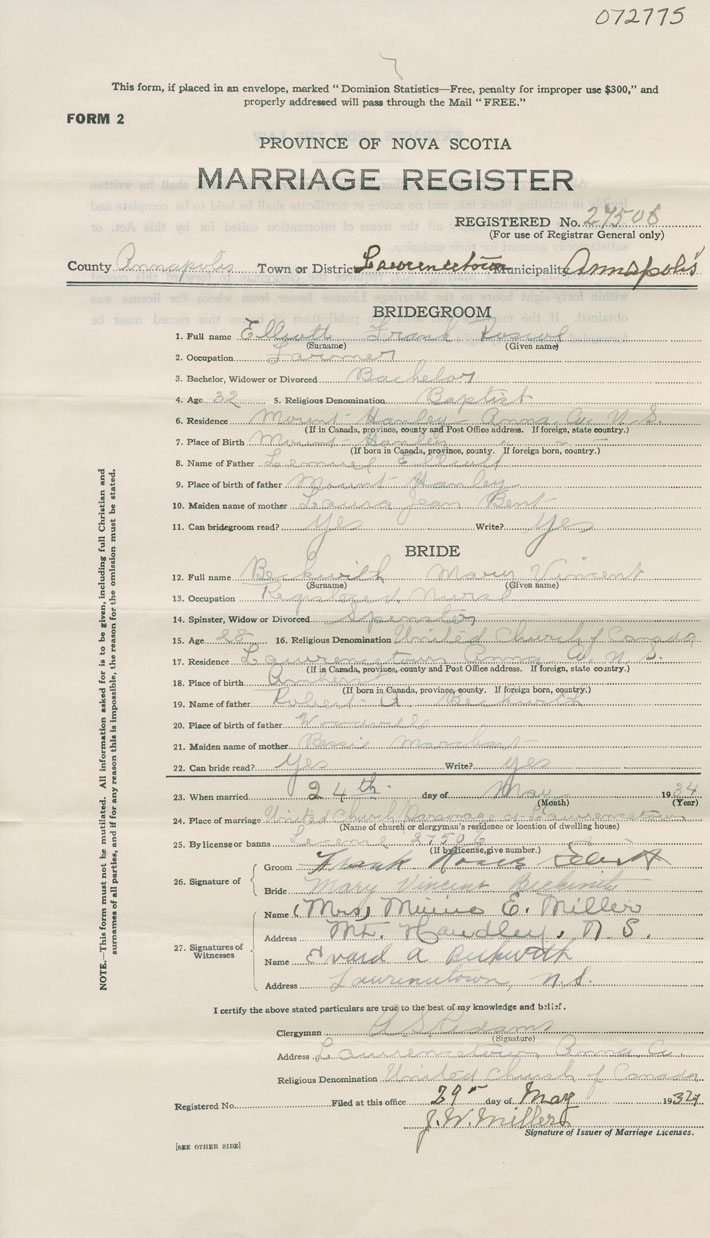 072775
This form, if placed in an envelope, marked "Dominion Statistics—Free, penalty for improper use $300," and
properly addressed will pass through the Mail "FREE."
FORM 2
PROVINCE OF NOVA SCOTIA
MARRIAGE REGISTER
REGISTERED No. 27506
(For use of Registrar General only)
County Annapolis Town or District Lawrencetown Municipality Annapolis
BRIDEGROOM
1. Full name Elliott Frank
(Surname) (Given name)
2. Occupation Farmer
3. Bachelor, Widower or Divorced Bachelor
4. Age 32 5. Religious Denomination Baptist
6. Residence Mount Hanley Anna. Co. N.S.
(If in Canada, province, county and Post Office address. If foreign, state country.)
7. Place of Birth Mount Hanley " " "
(If born in Canada, province, county. If foreign born, country.)
8. Name of Father Lemuel Elliott
9. Place of birth of father Mount Hanley
10. Maiden name of mother Laura Jean Bent
11. Can bridegroom read? Yes Write? Yes
BRIDE
12. Full name Beckwith Mary Vincent
(Surname) (Given name)
13. Occupation Registered Nurse
14. Spinster, Widow or Divorced Spinster
15. Age 28 16. Religious Denomination United Church of Canada
17. Residence Lawrencetown Anna. Co. N.S.
(If in Canada, province, county and Post Office address. If foreign, state country.)
18. Place of birth Amherst
(If born in Canada, province, county. If foreign born, country.)
19. Name of father Robert A. Beckwith
20. Place of birth of father
21. Maiden name of mother Bessie Marchant
22. Can bride read? Yes Write? Yes
23. When married 24th day of May 1934
(Month) (Year)
24. Place of marriage United Church Parsonage at Lawrencetown
(Name of church or clergyman's residence or location of dwelling house)
25. By license or banns License 27506
(If by license, give number.)
26. Signature of
Groom Frank Elliott
Bride Mary Vincent Beckwith
27. Signatures of
Witnesses
Name (Mrs) Minnie E. Miller
Address Mt. Handley, N.S.
Name Evard A Beckwith
Address Lawrencetown, N.S.
I certify the above stated particulars are true to the best of my knowledge and belief.
Clergyman
(Signature)
Address Lawrencetown Anna Co.
Religious Denomination United Church of Canada
Registered No. Filed at this office 29th day of May 1934
J. W. Miller
Signature of Issuer of Marriage Licenses.
[SEE OTHER SIDE]
NOTE.—This form must not be mutilated. All information asked for is to be given, including full Christian and
surnames of all parties, and if for any reason this is impossible, the reason for the omission must be stated.